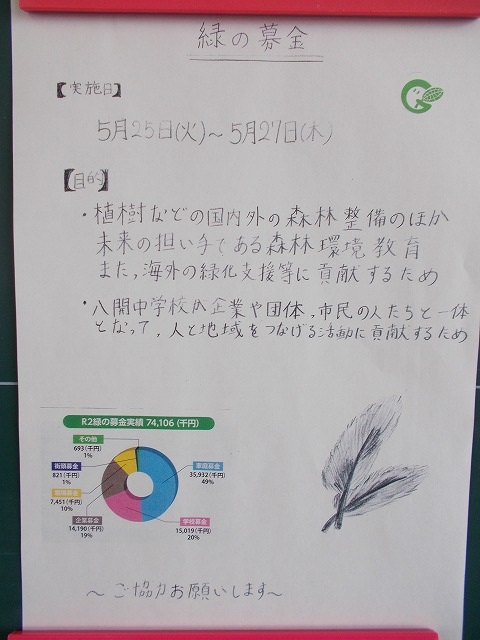 緑の募金
【実施日】
5月25日(火)～5月27日(木)
【目的】
・植樹などの国内外の森林整備のほか
未来の担い手である森林環境教育
また,海外の緑化支援等に貢献するため
・八開中学校が企業や団体,市民の人たちと一体
となって,人と地域をつなげる活動に貢献するため
R2緑の募金実績 74,106 (千円)
その他
693(千円)
1%
街頭募金
821(千円)
1%
職場募金
7,451(千円)
10%
企業募金
14,190(千円)
19%
家庭募金
35,932(千円)
49%
学校募金
15,019(千円)
20%
～ご協力お願いします～